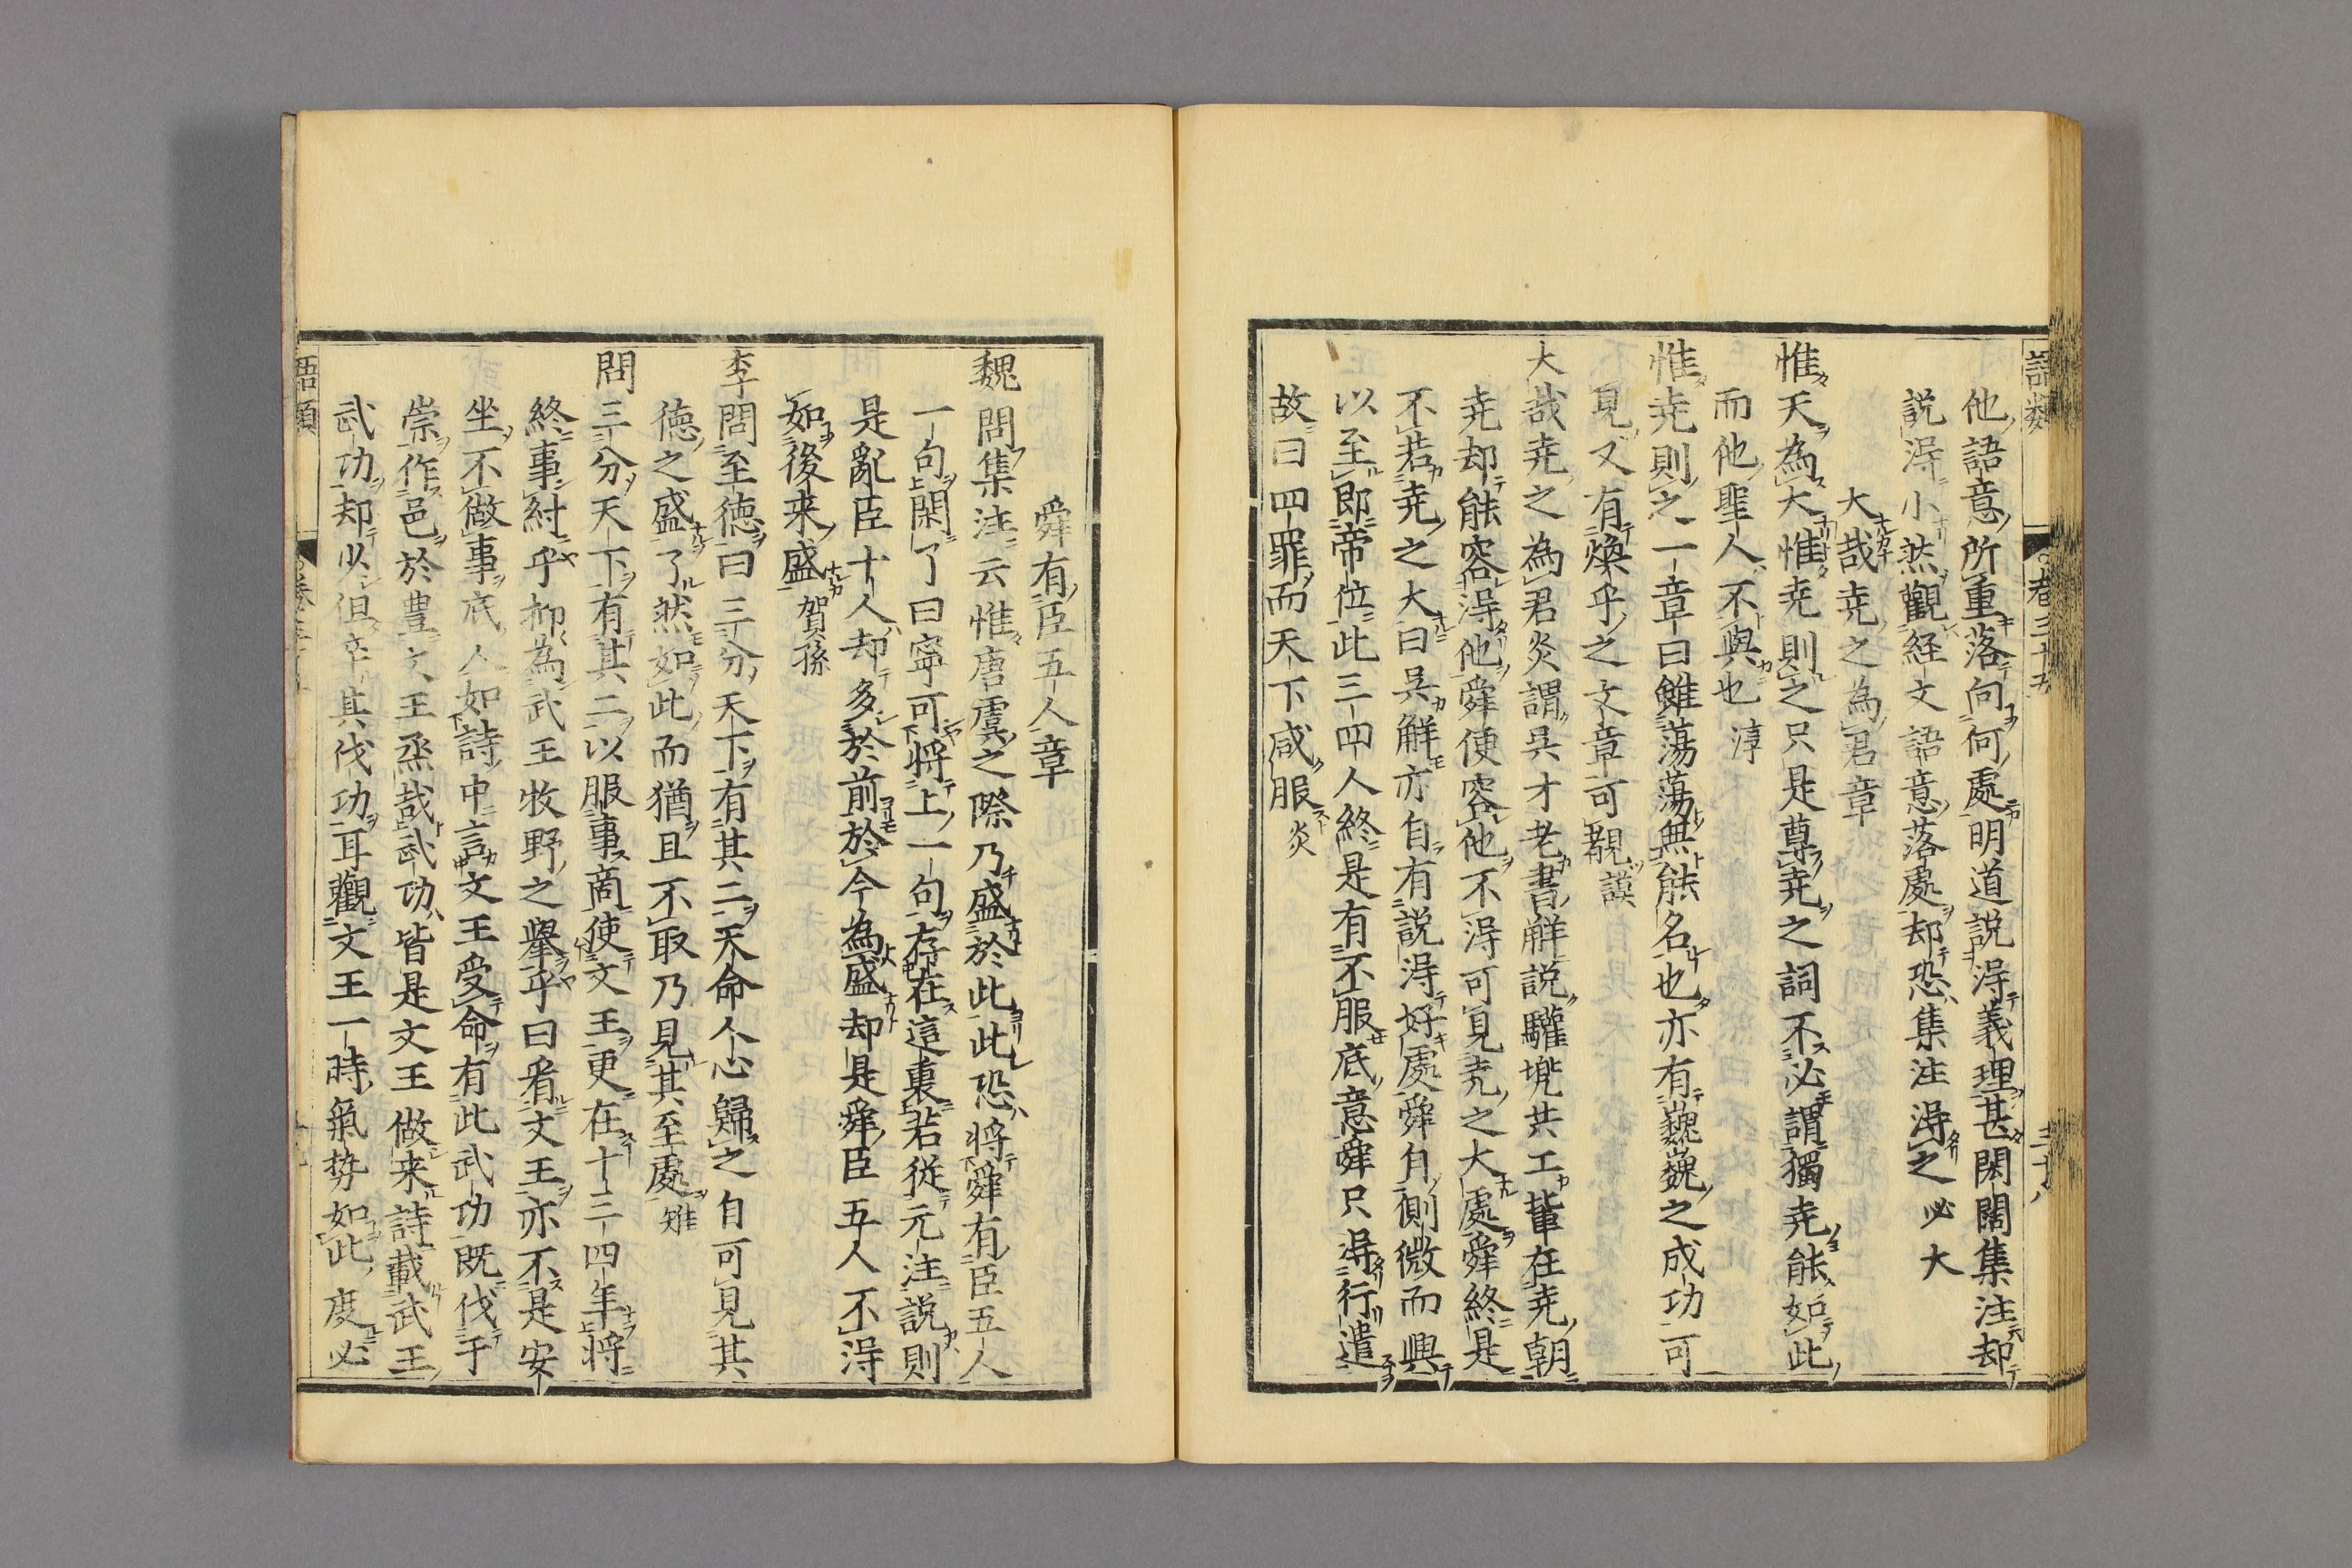 語類 卷三十五
他語意所重落向何處明道說得義理甚閎闊集注却
說得小然觀経文語意落處却恐集注得之 必大
大哉堯之為君章
惟天為大惟堯則之只是尊堯之詞不必謂獨堯能如此
而他聖人不與也 淳
惟堯則之一章曰雖蕩蕩無能名也亦有巍巍之成功可
見又有煥乎之文章可覩 謨
大哉堯之為君炎謂吳才老書解說驩兜共工輩在堯朝
堯却能容得他舜便容他不得可見堯之大處舜終是
不若堯之大曰吳解亦自有說得好處舜自側微而興
以至即帝位此三四人終是有不服底意舜只得行遣
故曰四罪而天下咸服 炎
舜有臣五人章
魏問集注云惟唐虞之際乃盛於此此恐将舜有臣五人
一句閑了曰寧可将上一句存在這裏若從元注說則
是亂臣十人却多於前於今為盛却是舜臣五人不得
如後来盛 賀孫
李問至德曰三分天下有其二天命人心歸之自可見其
德之盛了然如此而猶且不取乃見其至處 雉
問三分天下有其二以服事商使文王更在十三四年将
終事紂乎抑為武王牧野之舉乎曰看文王亦不是安
坐不做事底人如詩中言文王受命有此武功既伐于
崇作邑於豊文王烝哉武功皆是文王做来詩載武王
武功却以但卒其伐功耳觀文王一時氣勢如此度必
語類